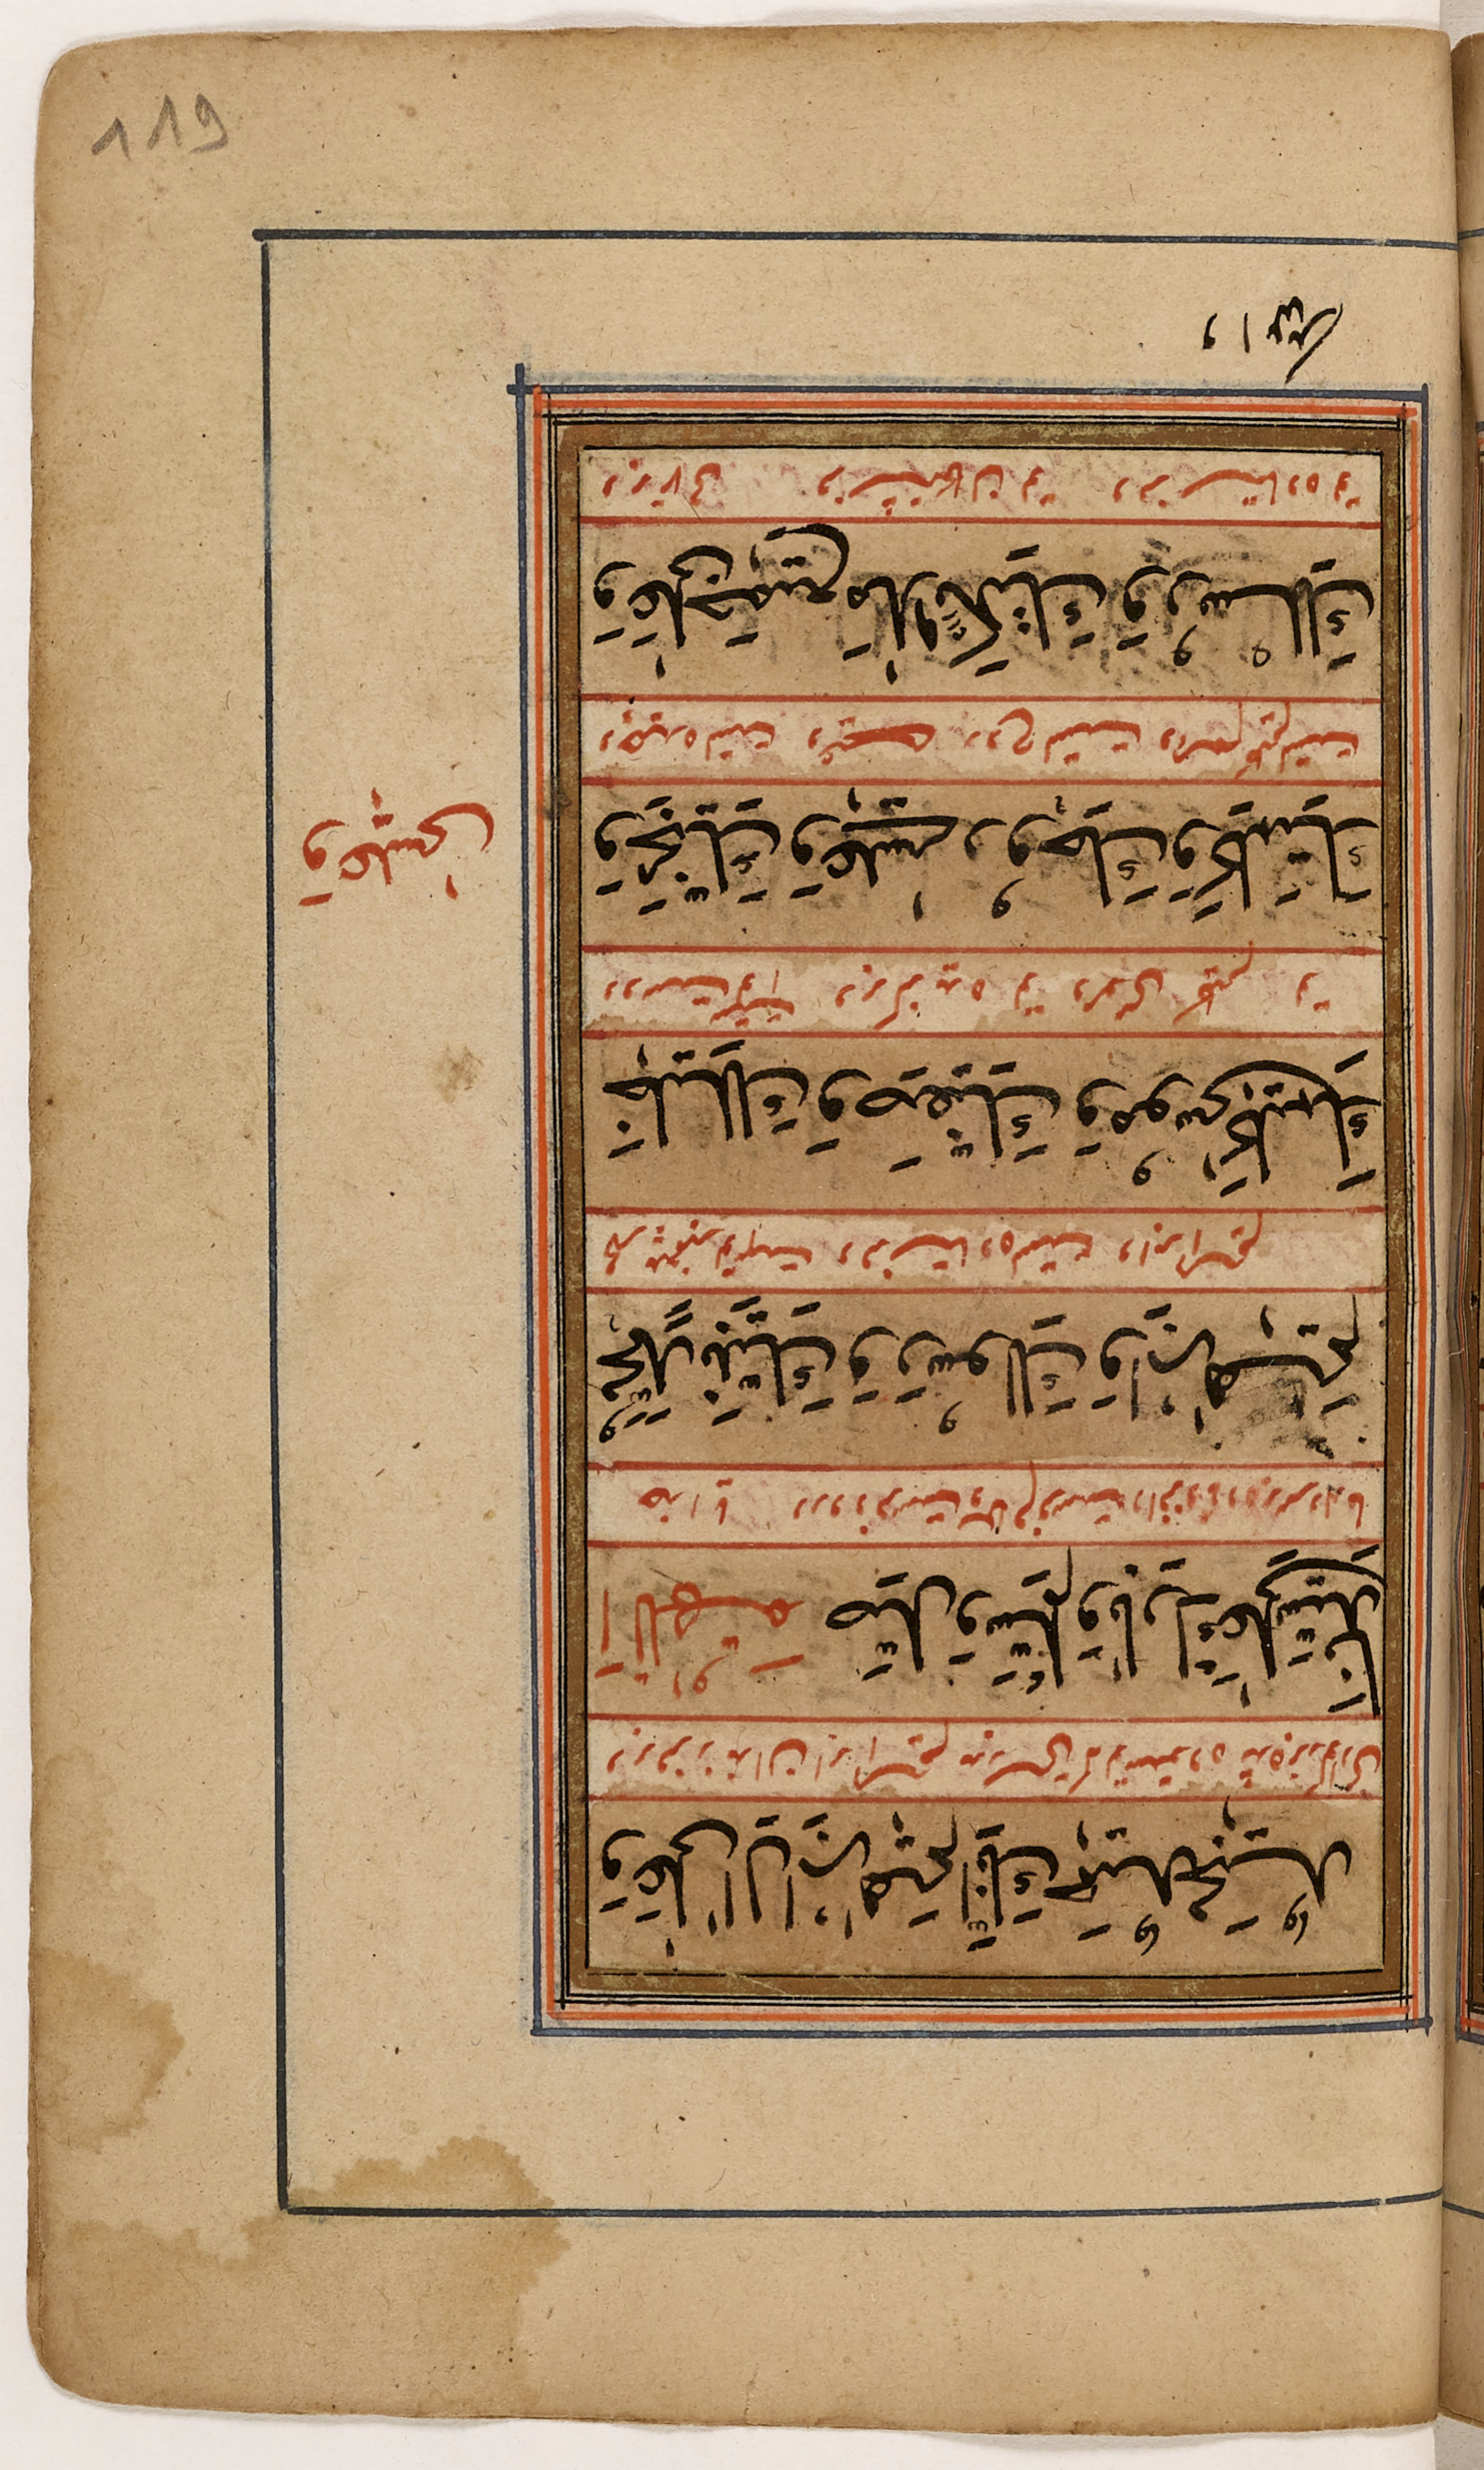 وَعَلٰى اٰلِ اِبْرٰهِيْمَ اِنَّكَ حَمِيْدٌ مَجِيْدٌ
و بر فرزندان ابراهیم بدرستی که تو ستوده شده بزرگواری
اَللّٰهُمَّ صَلِّ وَسَلِّمْ وَبَارِكْ عَلٰى سَيِّدِنَا
خدایا درود فرست و سلام فرست و افزونی ده بر مهتر ما
مُحَمَّدٍ نَبِيِّكَ وَرَسُوْلِكَ وَاِبْرٰهِيْمَ
محمد پیغمبر تست و فرستاده تست و ابراهیم
خَلِيْلِكَ وَصَفِيِّكَ وَمُوْسٰى كَلِيْمِكَ
دوست و برگزیده تو و موسی کلیم تو
وَنَجِيِّكَ وَعِيْسٰى رُوْحِكَ وَكَلِمَتِكَ
تست و عیسی روح تست و تست
وَعِيْسٰى
وَعَلٰى جَمِيْعِ مَلٰئِكَتِكَ وَرُسُلِكَ
و بر تمامی فرشتگان تو و فرستاده تو
وانبيا
119